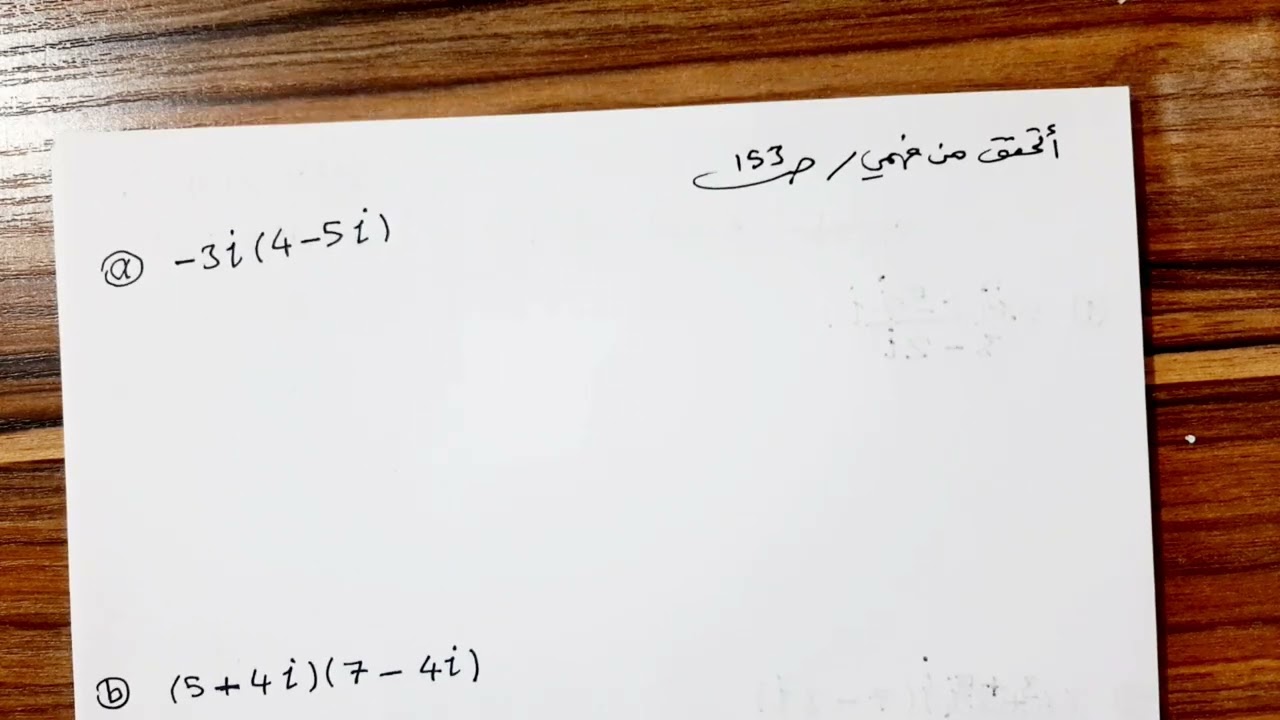 أتحقق من فهمي / ص 153
ⓐ -3i(4-5i)
ⓑ (5+4i)(7-4i)